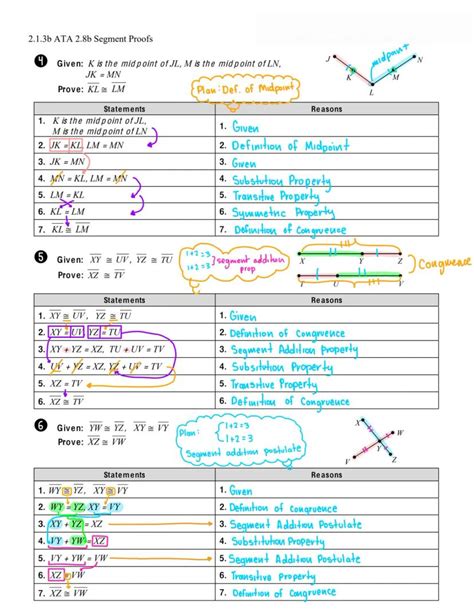 2.1.3b ATA 2.8b Segment Proofs
4 Given: K is the midpoint of JL, M is the midpoint of LN,
JK = MN
Prove: KL ≅ LM
Plan: Def. of Midpoint
midpoint
J K L M N
Statements Reasons
1. K is the midpoint of JL, 1. Given
M is the midpoint of LN
2. JK = KL, LM = MN 2. Definition of Midpoint
3. JK = MN 3. Given
4. MN = KL, LM = MN 4. Substution Property
5. LM = KL 5. Transitive Property
6. KL = LM 6. Symmetric Property
7. KL ≅ LM 7. Definition of Congruence
5 Given: XY ≅ UV, YZ ≅ TU
Prove: XZ ≅ TV
1+2=3
1+2=3
segment addition
prop
X Y Z
T U V
Congruence
Statements Reasons
1. XY ≅ UV, YZ ≅ TU 1. Given
2. XY = UV, YZ = TU 2. Definition of Congruence
3. XY + YZ = XZ, TU + UV = TV 3. Segment Addition Property
4. UV + YZ = XZ, YZ + UV = TV 4. Subsitution Property
5. XZ = TV 5. Transitive Property
6. XZ ≅ TV 6. Definition of Congruence
6 Given: YW ≅ YZ, XY ≅ VY
Prove: XZ ≅ VW
Plan:
1+2=3
1+2=3
Segment addition postulate
X W Y V Z
Statements Reasons
1. WY ≅ YZ, XY ≅ VY 1. Given
2. WY = YZ, XY = VY 2. Definition of Congruence
3. XY + YZ = XZ 3. Segment Addition Postulate
4. VY + YW = XZ 4. Substitution Property
5. VY + YW = VW 5. Segment Addition Postulate
6. XZ = VW 6. Transitive property
7. XZ ≅ VW 7. Definition of Congruence